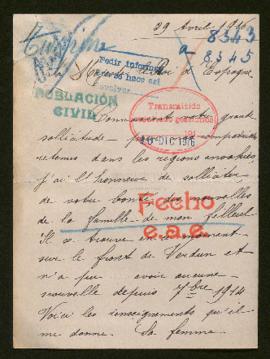 29 Avril 1916
8343
a
8345
Pedir informes
Majesté le Roi d'Espagne
POBLACIÓN
CIVIL
Connaissant votre grande
sollicitude pour
Transmitido
DIC 1916
retenus dans les régions envahies
j'ai l'honneur de solliciter
de votre bonté des nouvelles
Fecho
de la famille de mon filleul
e.a.e.
Il se trouve en ce moment
sur le front de Verdun et
n'a pu avoir aucune
nouvelle depuis 7bre 1914
Voici les renseignements qu'il
me donne. Sa femme